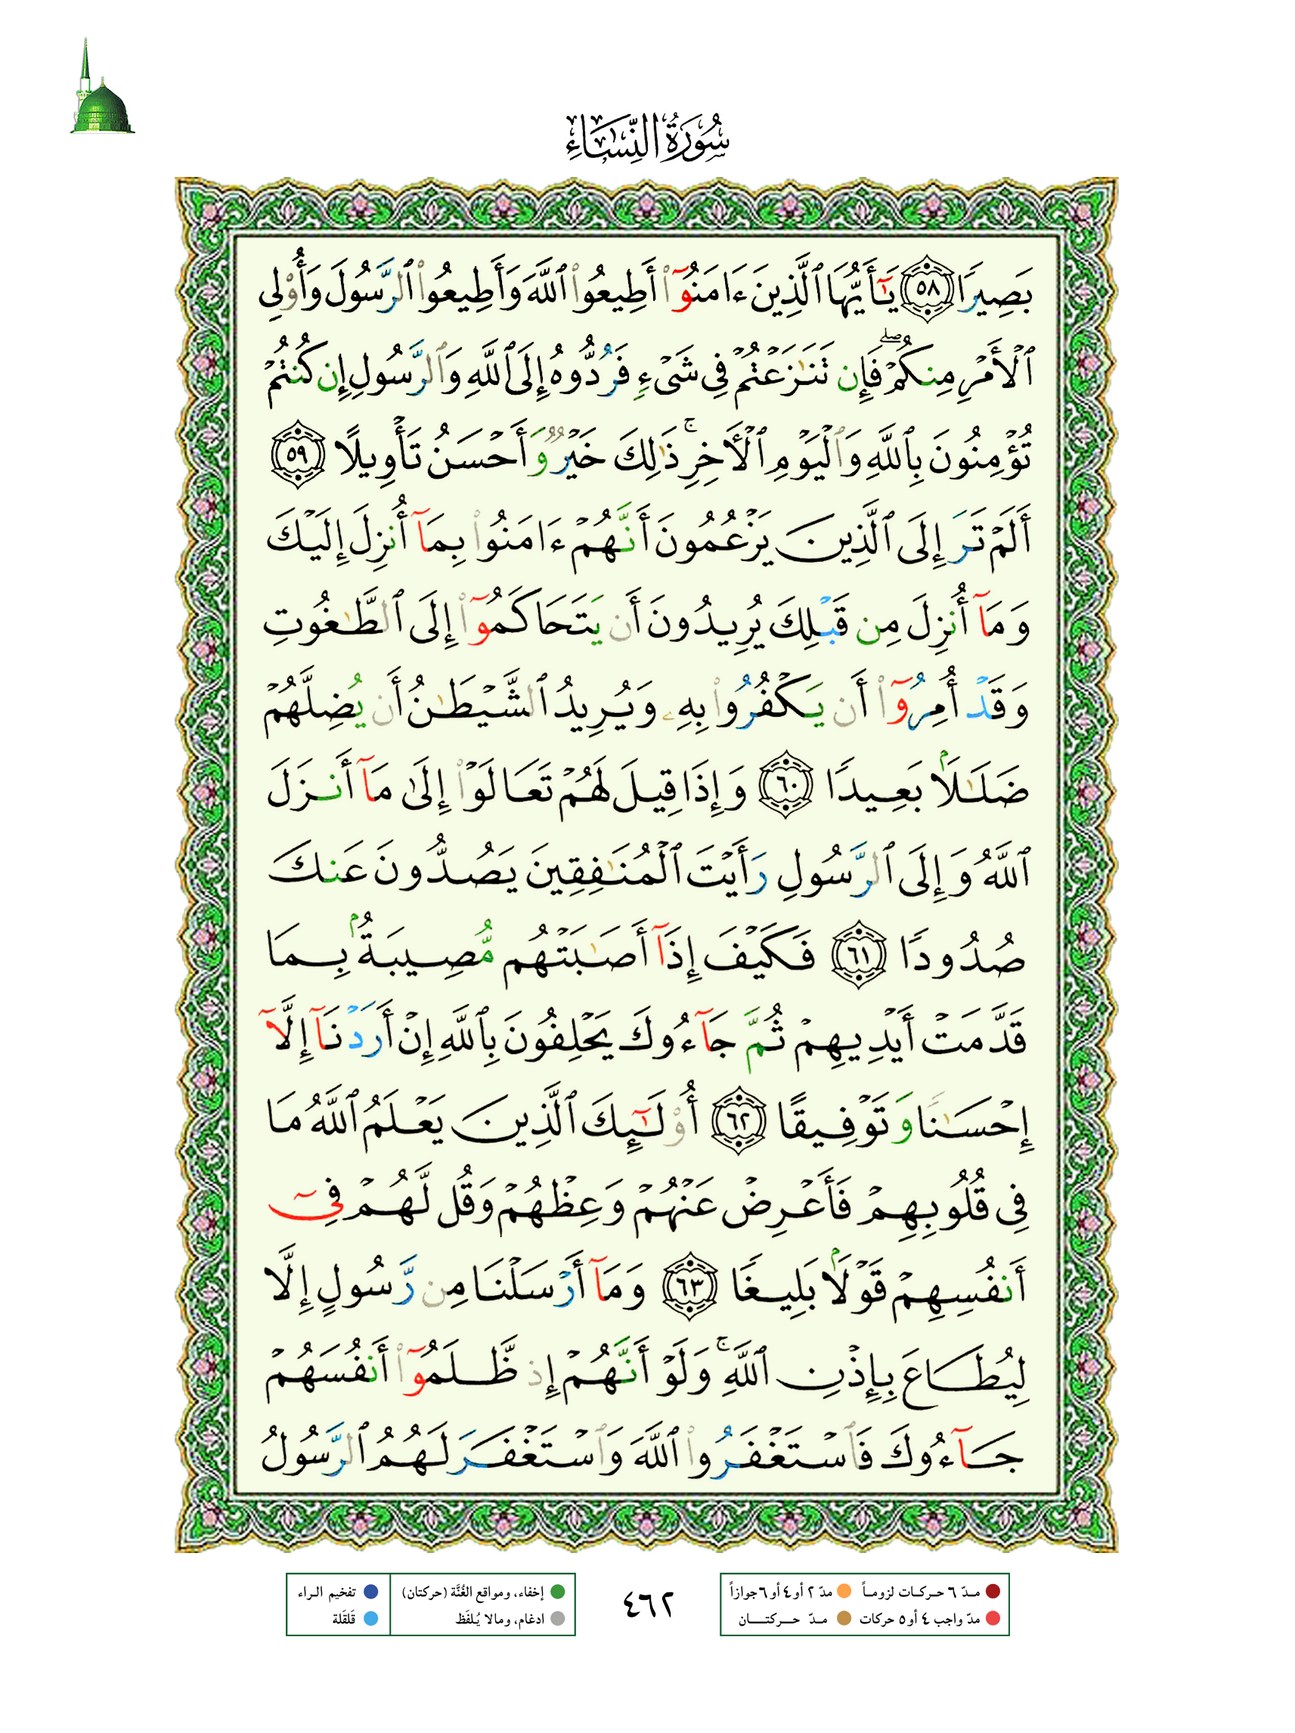 سُورَةُ النِّسَاءِ
بَصِيرًا ٥٨ يَٰٓأَيُّهَا ٱلَّذِينَ ءَامَنُوٓا۟ أَطِيعُوا۟ ٱللَّهَ وَأَطِيعُوا۟ ٱلرَّسُولَ وَأُو۟لِى
ٱلْأَمْرِ مِنكُمْ ۖ فَإِن تَنَٰزَعْتُمْ فِى شَىْءٍ فَرُدُّوهُ إِلَى ٱللَّهِ وَٱلرَّسُولِ إِن كُنتُمْ
تُؤْمِنُونَ بِٱللَّهِ وَٱلْيَوْمِ ٱلْءَاخِرِ ۚ ذَٰلِكَ خَيْرٌ وَأَحْسَنُ تَأْوِيلًا ٥٩
أَلَمْ تَرَ إِلَى ٱلَّذِينَ يَزْعُمُونَ أَنَّهُمْ ءَامَنُوا۟ بِمَآ أُنزِلَ إِلَيْكَ
وَمَآ أُنزِلَ مِن قَبْلِكَ يُرِيدُونَ أَن يَتَحَاكَمُوٓا۟ إِلَى ٱلطَّٰغُوتِ
وَقَدْ أُمِرُوٓا۟ أَن يَكْفُرُوا۟ بِهِۦ وَيُرِيدُ ٱلشَّيْطَٰنُ أَن يُضِلَّهُمْ
ضَلَٰلًۢا بَعِيدًا ٦٠ وَإِذَا قِيلَ لَهُمْ تَعَالَوْا۟ إِلَىٰ مَآ أَنزَلَ
ٱللَّهُ وَإِلَى ٱلرَّسُولِ رَأَيْتَ ٱلْمُنَٰفِقِينَ يَصُدُّونَ عَنكَ
صُدُودًا ٦١ فَكَيْفَ إِذَآ أَصَٰبَتْهُم مُّصِيبَةٌۢ بِمَا
قَدَّمَتْ أَيْدِيهِمْ ثُمَّ جَآءُوكَ يَحْلِفُونَ بِٱللَّهِ إِنْ أَرَدْنَآ إِلَّآ
إِحْسَٰنًا وَتَوْفِيقًا ٦٢ أُو۟لَٰٓئِكَ ٱلَّذِينَ يَعْلَمُ ٱللَّهُ مَا
فِى قُلُوبِهِمْ فَأَعْرِضْ عَنْهُمْ وَعِظْهُمْ وَقُل لَّهُمْ فِىٓ
أَنفُسِهِمْ قَوْلًۢا بَلِيغًا ٦٣ وَمَآ أَرْسَلْنَا مِن رَّسُولٍ إِلَّا
لِيُطَاعَ بِإِذْنِ ٱللَّهِ ۚ وَلَوْ أَنَّهُمْ إِذ ظَّلَمُوٓا۟ أَنفُسَهُمْ
جَآءُوكَ فَٱسْتَغْفَرُوا۟ ٱللَّهَ وَٱسْتَغْفَرَ لَهُمُ ٱلرَّسُولُ
مـدّ ٦ حـركـات لزومـاً مدّ ٢ أو ٤ أو ٦ جوازاً
مدّ واجب ٤ أو ٥ حركات مـدّ حـركتـان
٤٦٢
إخفاء، ومواقع الغُنَّة (حركتان) تفخيم الـراء
ادغام، ومالا يُـلفَظ قَلقَلة